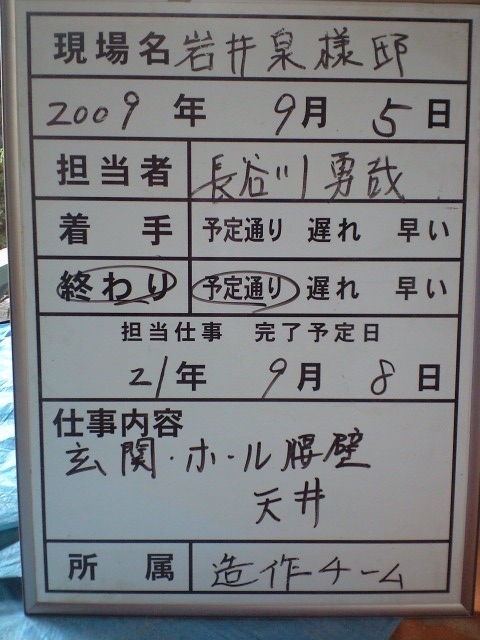 現場名 岩井泉様邸
2009年 9月 5日
担当者 長谷川勇哉
着手 予定通り 遅れ 早い
終わり 予定通り 遅れ 早い
担当仕事 完了予定日
21年 9月 8日
仕事内容
玄関・ホール腰壁
天井
所属 造作チーム